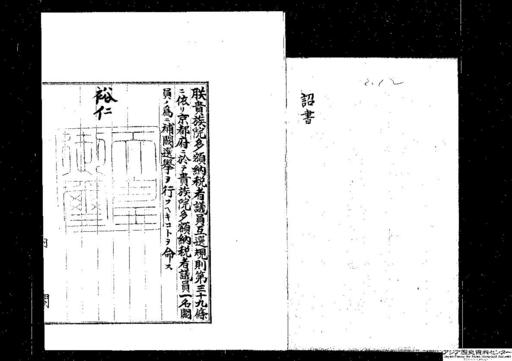 詔書
朕貴族院多額納税者議員互選規則第三十九條
ニ依リ京都府ニ於テ貴族院多額納税者議員一名闕
員ノ爲ニ補闕選擧ヲ行フヘキコトヲ命ス
裕仁
天皇
御璽
内
閣
アジア歴史資料センター